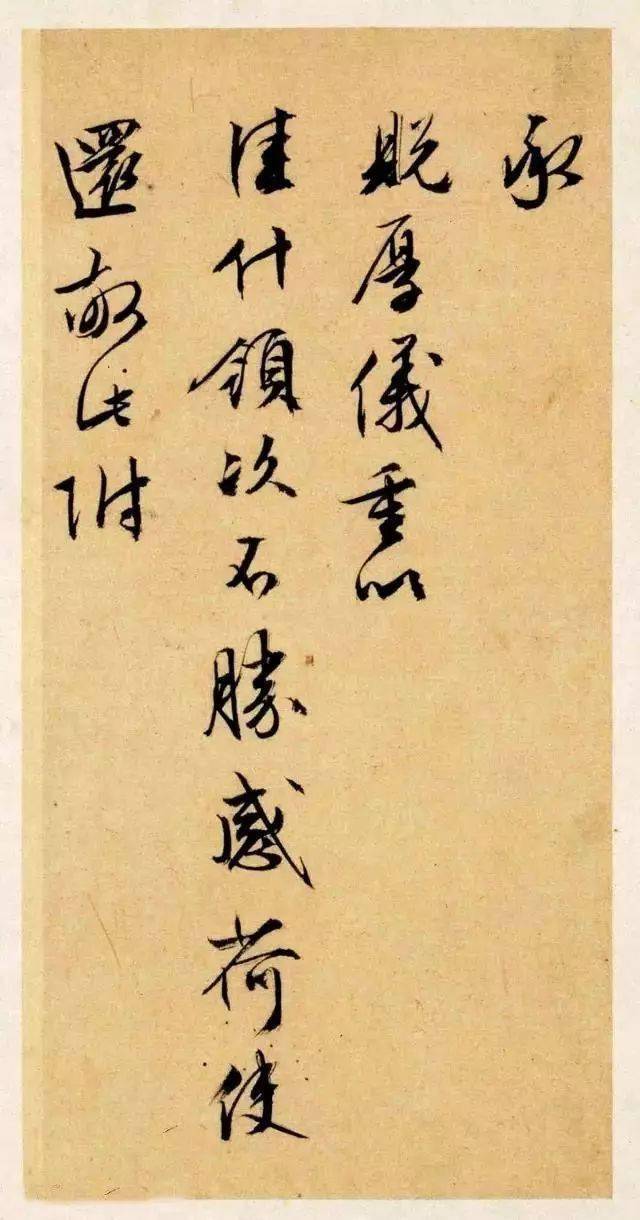 承
貺厚儀重以
佳什領次不勝感荷使
還敬此附